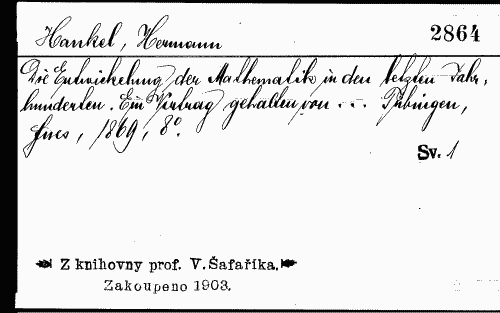 Hankel, Hermann
2864
Die Entwickelung der Mathematik in den letzten Jahr,
hunderten. Ein Vortrag gehalten von ... Tübingen,
Fues, 1869, 8°.
Sv. 1
Z knihovny prof. V. Šafaříka.
Zakoupeno 1903.